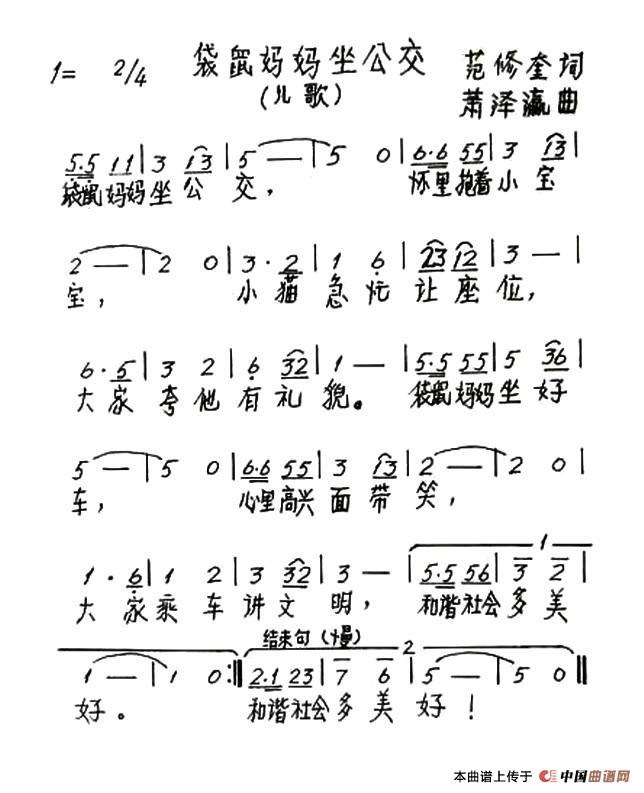 袋鼠妈妈坐公交
(儿歌)
1= 2/4
范修奎词
萧泽瀛曲
5·5 11 | 3 13 | 5 — | 5 0 | 6·6 55 | 3 13 |
袋鼠妈妈坐公交, 怀里抱着小宝
2 — | 2 0 | 3·2 | 1 6 | 23 12 | 3 — |
宝, 小猫急忙让座位,
6·5 | 3 2 | 6 32 | 1 — | 5·5 55 | 5 36 |
大家夸他有礼貌。 袋鼠妈妈坐好
5 — | 5 0 | 6·6 55 | 3 13 | 2 — | 2 0 |
车, 心里高兴面带笑,
1·6 | 1 2 | 3 32 | 3 — | 5·5 56 | 3 2 |
1
大家乘车讲文明, 和谐社会多美
结束句(慢)
2
1 — | 1 0 :‖ 2·1 23 | 7 6 | 5 — | 5 0 ‖
好。 和谐社会多美好!
本曲谱上传于 中国曲谱网